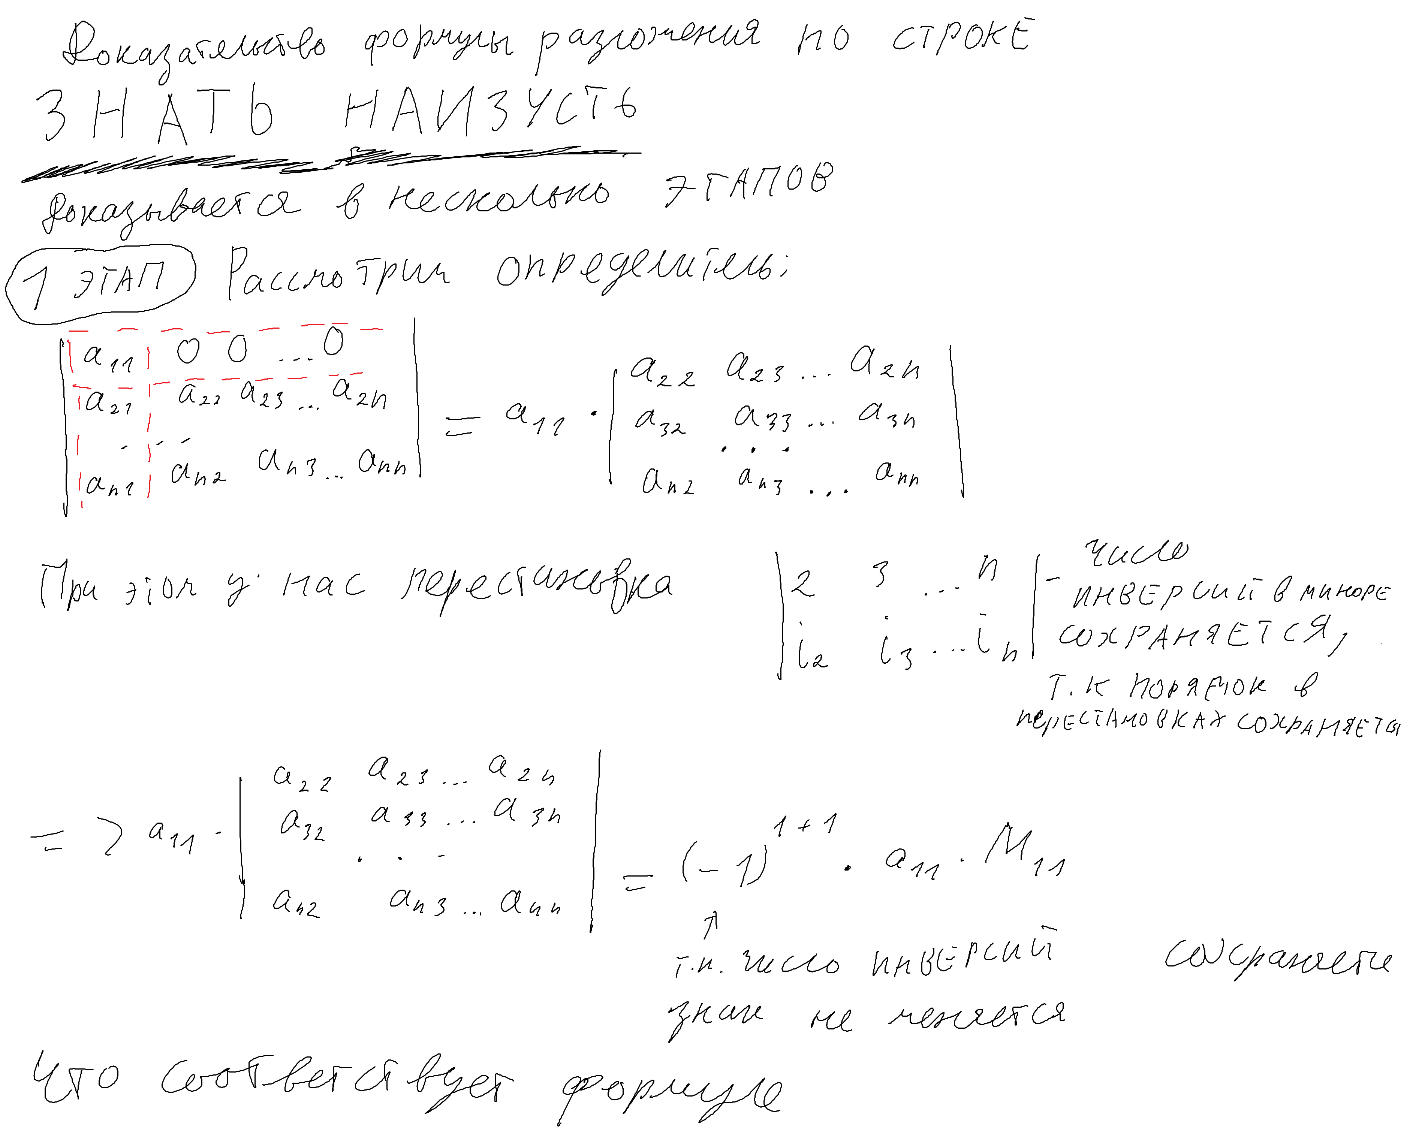 Доказательство формулы разложения по СТРОКЕ
ЗНАТЬ НАИЗУСТЬ
Доказывается в несколько ЭТАПОВ
1 ЭТАП Рассмотрим определитель:
| a₁₁ 0 0 ... 0 |
| a₂₁ a₂₂ a₂₃ ... a₂ₙ |
| . . . |
| aₙ₁ aₙ₂ aₙ₃ ... aₙₙ |
= a₁₁ ·
| a₂₂ a₂₃ ... a₂ₙ |
| a₃₂ a₃₃ ... a₃ₙ |
| . . . |
| aₙ₂ aₙ₃ ... aₙₙ |
При этом у нас перестановка
| 2 3 ... n |
| i₂ i₃ ... iₙ |
- число
ИНВЕРСИЙ В МИНОРЕ
СОХРАНЯЕТСЯ,
Т.К ПОРЯДОК в
ПЕРЕСТАНОВКАХ СОХРАНЯЕТСЯ
=> a₁₁ ·
| a₂₂ a₂₃ ... a₂ₙ |
| a₃₂ a₃₃ ... a₃ₙ |
| . . . |
| aₙ₂ aₙ₃ ... aₙₙ |
= (-1)¹⁺¹ · a₁₁ · M₁₁
↑
т.к. число ИНВЕРСИЙ
знак не меняется
Что соответствует формуле